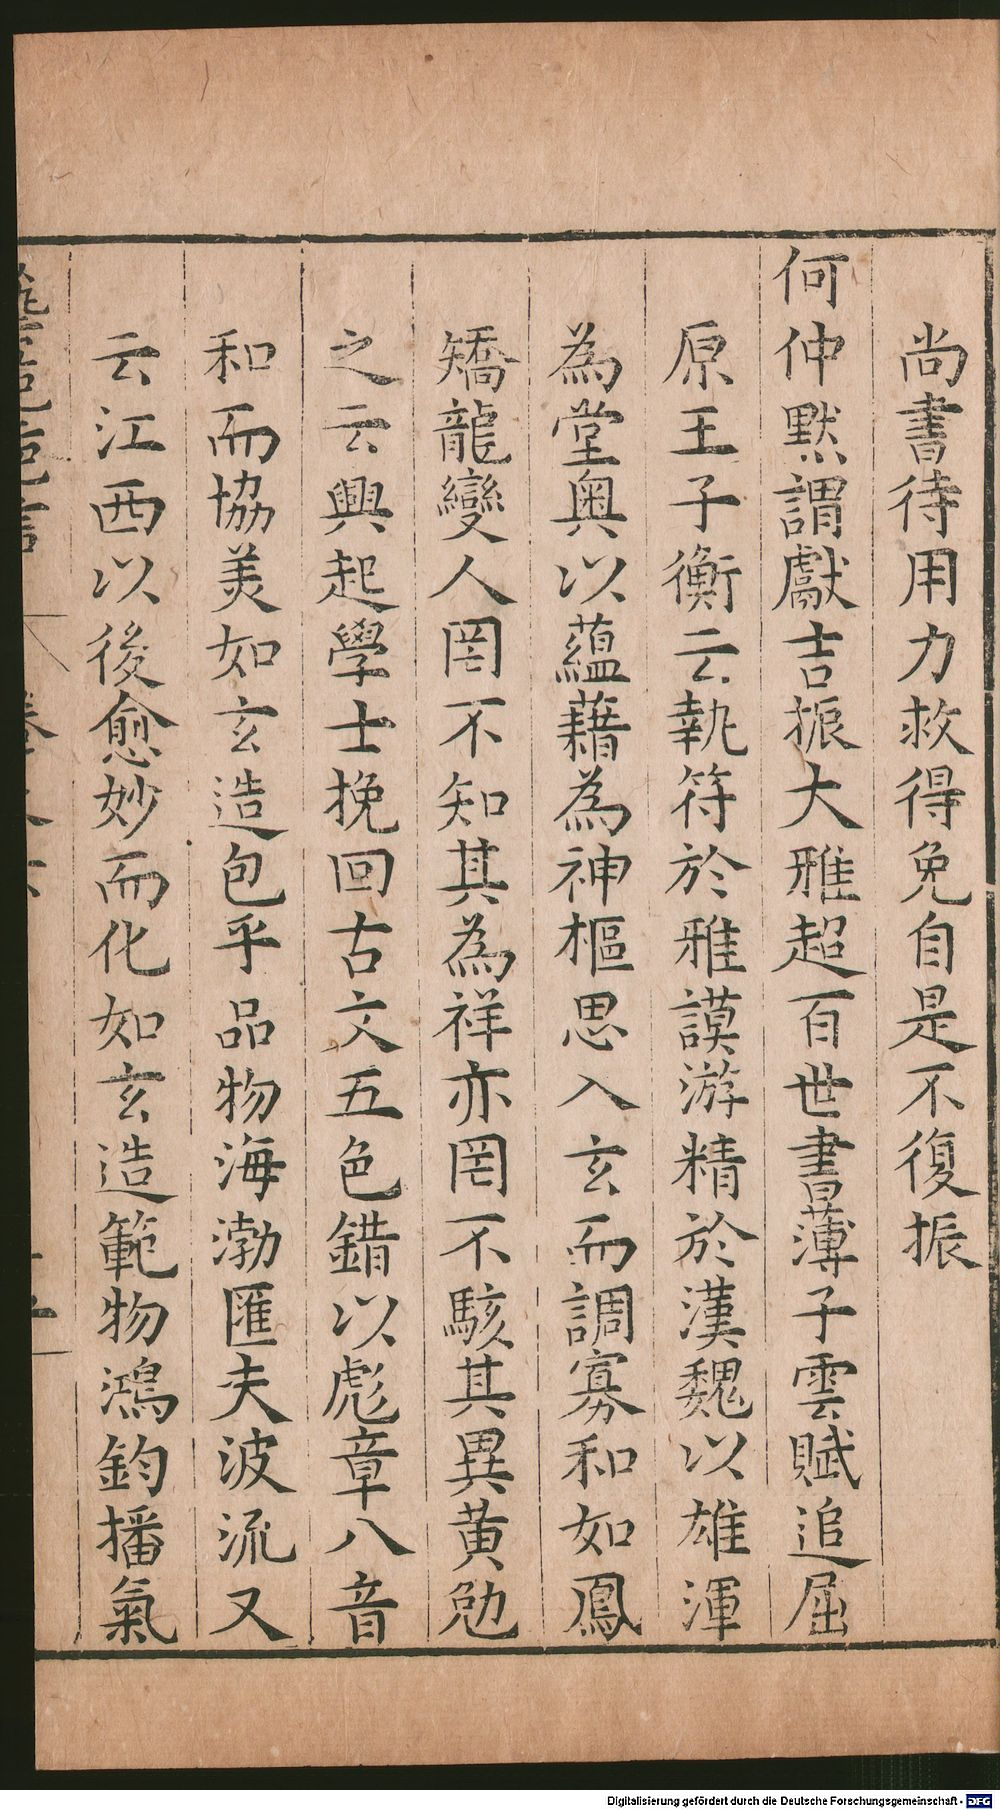 尚書待用力救得免自是不復振
何仲默謂獻吉振大雅超百世書薄子雲賦追屈
原王子衡云執符於雅謨游精於漢魏以雄渾
為堂奥以蘊藉為神樞思入玄而調寡和如鳳
矯龍變人罔不知其為祥亦罔不駭其異黄勉
之云興起學士挽回古文五色錯以彪章八音
和而協美如玄造包乎品物海渤匯夫波流又
云江西以後愈妙而化如玄造範物鴻鈞播氣
Digitalisierung gefördert durch die Deutsche Forschungsgemeinschaft - DFG